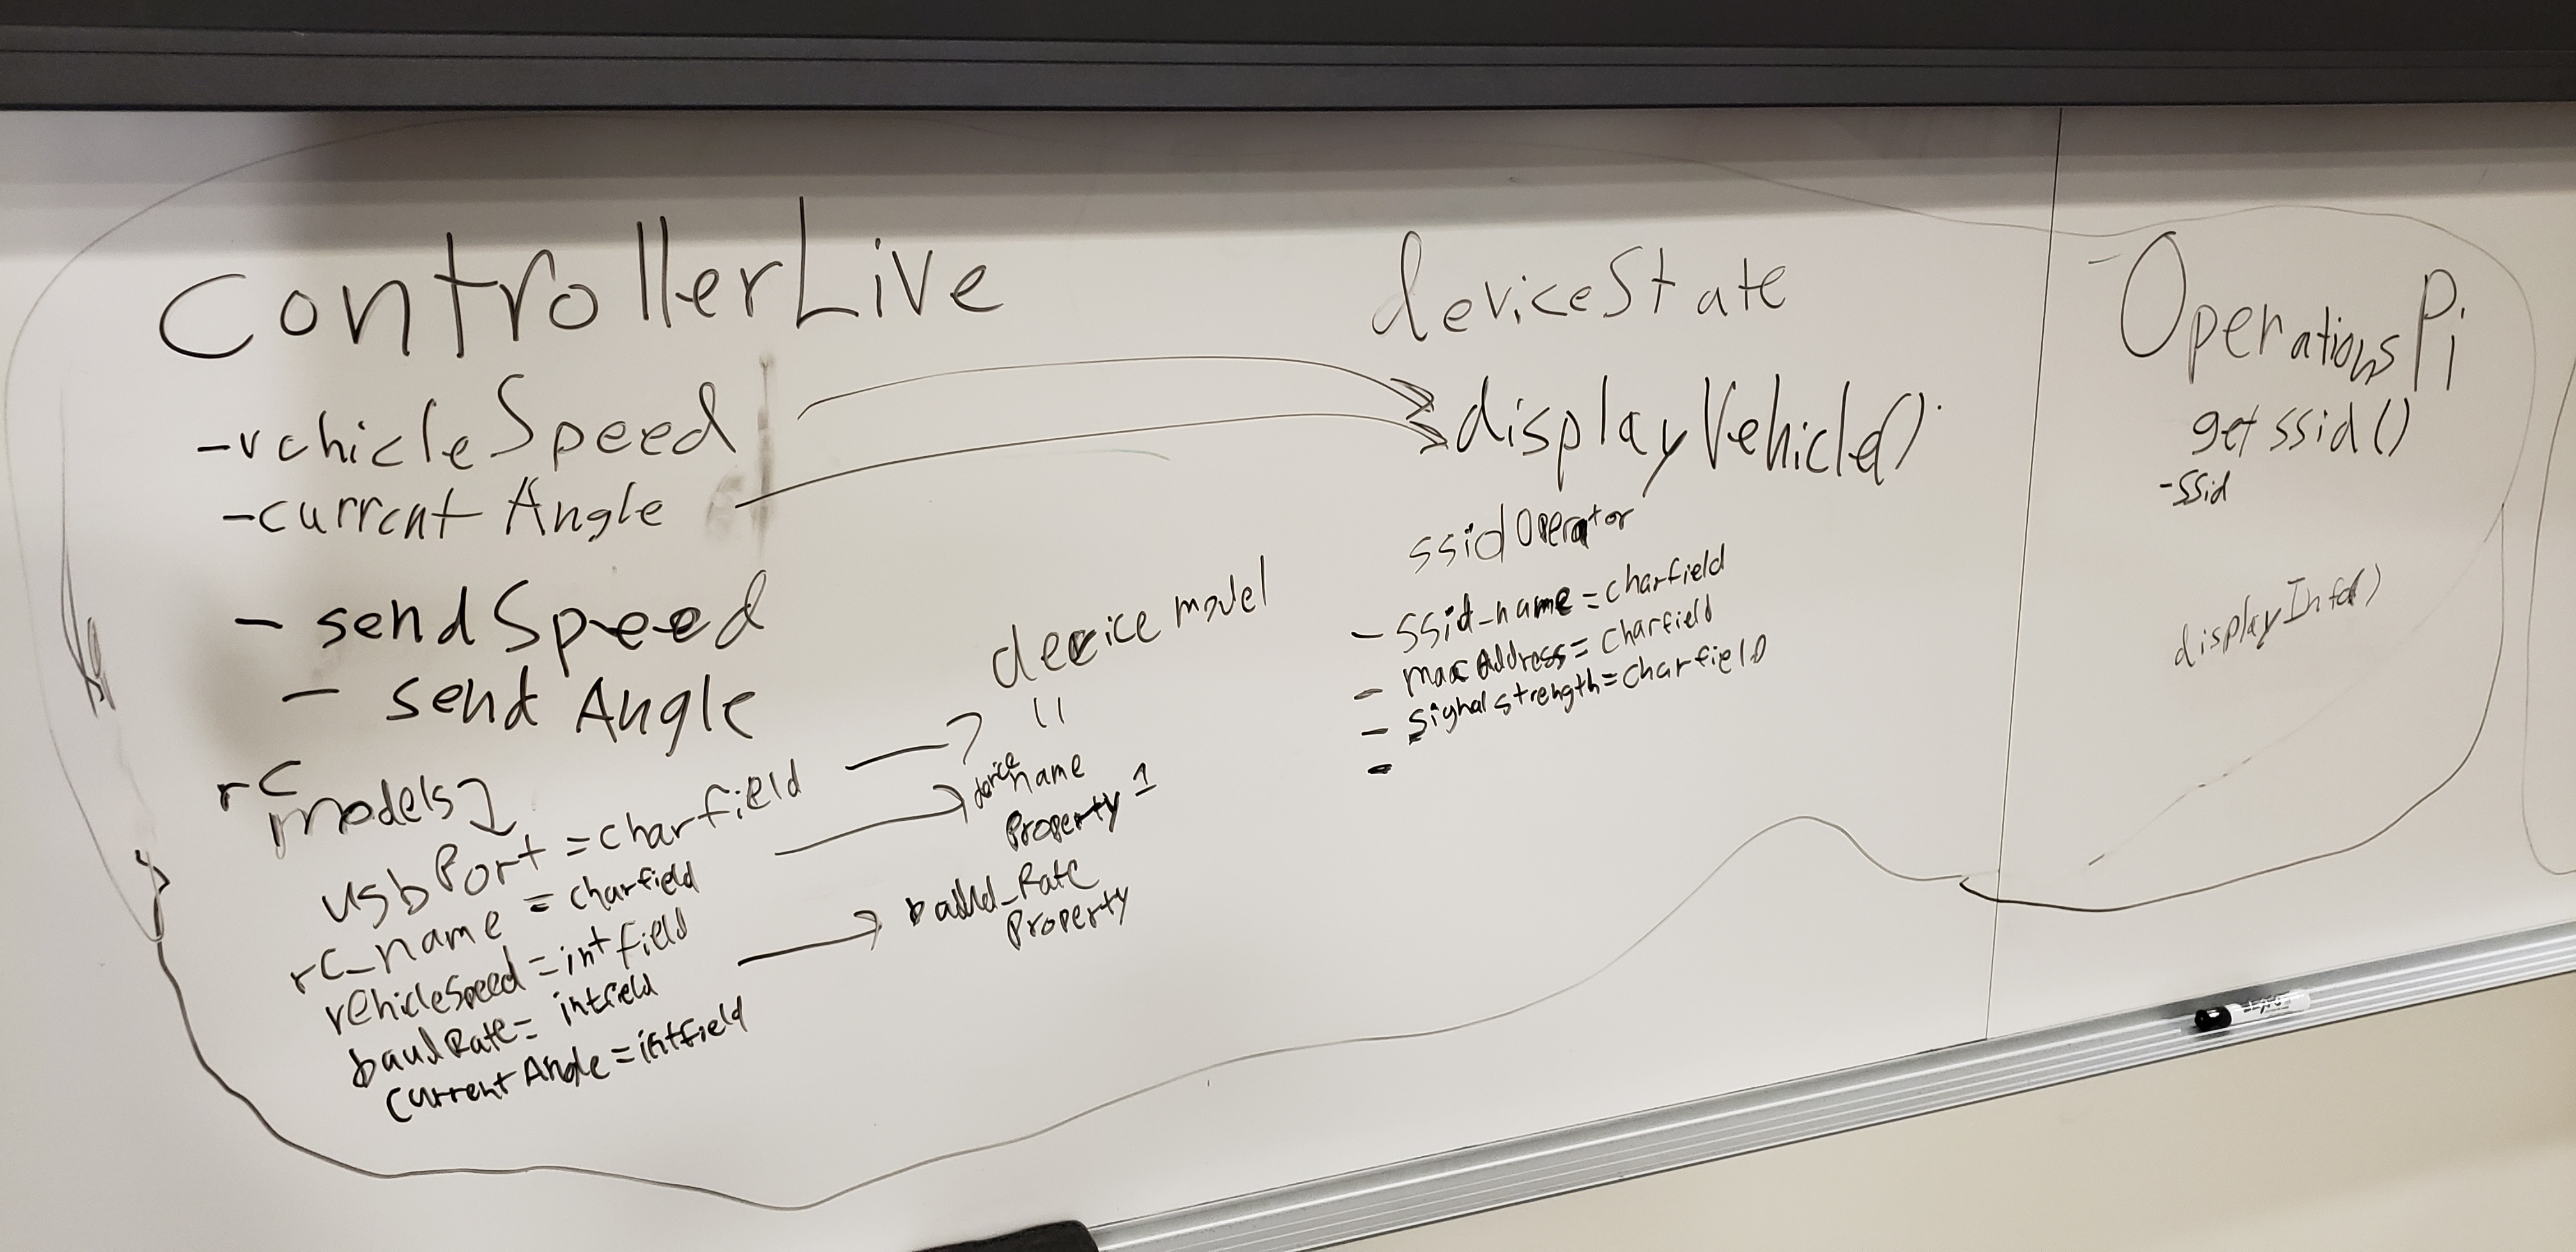 controllerLive
-vehicleSpeed
-current Angle
- sendSpeed
- send Angle
rc
models
usbPort = charfield
rc_name = charfield
vehicleSpeed = intfield
baudRate = intfield
CurrentAngle = intfield
device model
device name
Property 1
Rate
Property
deviceState
displayVehicle()
ssidOperator
- SSid_name = charfield
- macAddress = Charfield
- Signalstrength = charfield
-
- OperationsPi
get ssid()
-SSid
displayInfo()